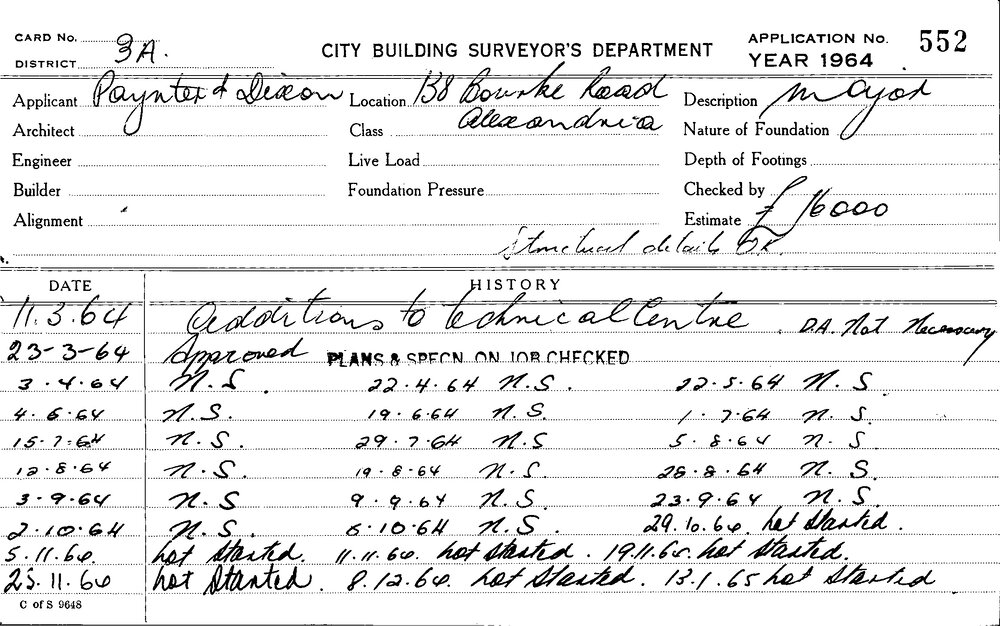 CARD No.
DISTRICT 3A.
CITY BUILDING SURVEYOR'S DEPARTMENT
APPLICATION No. 552
YEAR 1964
Applicant Paynter & Dixon Location 138 Bourke Road Description Major
Architect Class Alexandria Nature of Foundation
Engineer Live Load Depth of Footings
Builder Foundation Pressure Checked by
Alignment Estimate £ 16000
Structural details OK.
DATE HISTORY
11.3.64 Additions to Technical Centre. D.A. Not Necessary
23-3-64 Approved PLANS & SPECN. ON JOB CHECKED
3.4.64 N.S. 22.4.64 N.S. 22.5.64 N.S
4.6.64 N.S. 19.6.64 N.S. 1.7.64 N.S.
15.7.64 N.S. 29.7.64 N.S 5.8.64 N.S.
12.8.64 N.S. 19.8.64 N.S. 26.8.64 N.S.
3.9.64 N.S 9.9.64 N.S. 23.9.64 N.S.
2.10.64 N.S. 6.10.64 N.S. 29.10.64 not started.
5.11.64. not started. 11.11.64. not started. 19.11.64. not started.
25.11.64 not started. 8.12.64. not started. 13.1.65 not started
C of S 9648